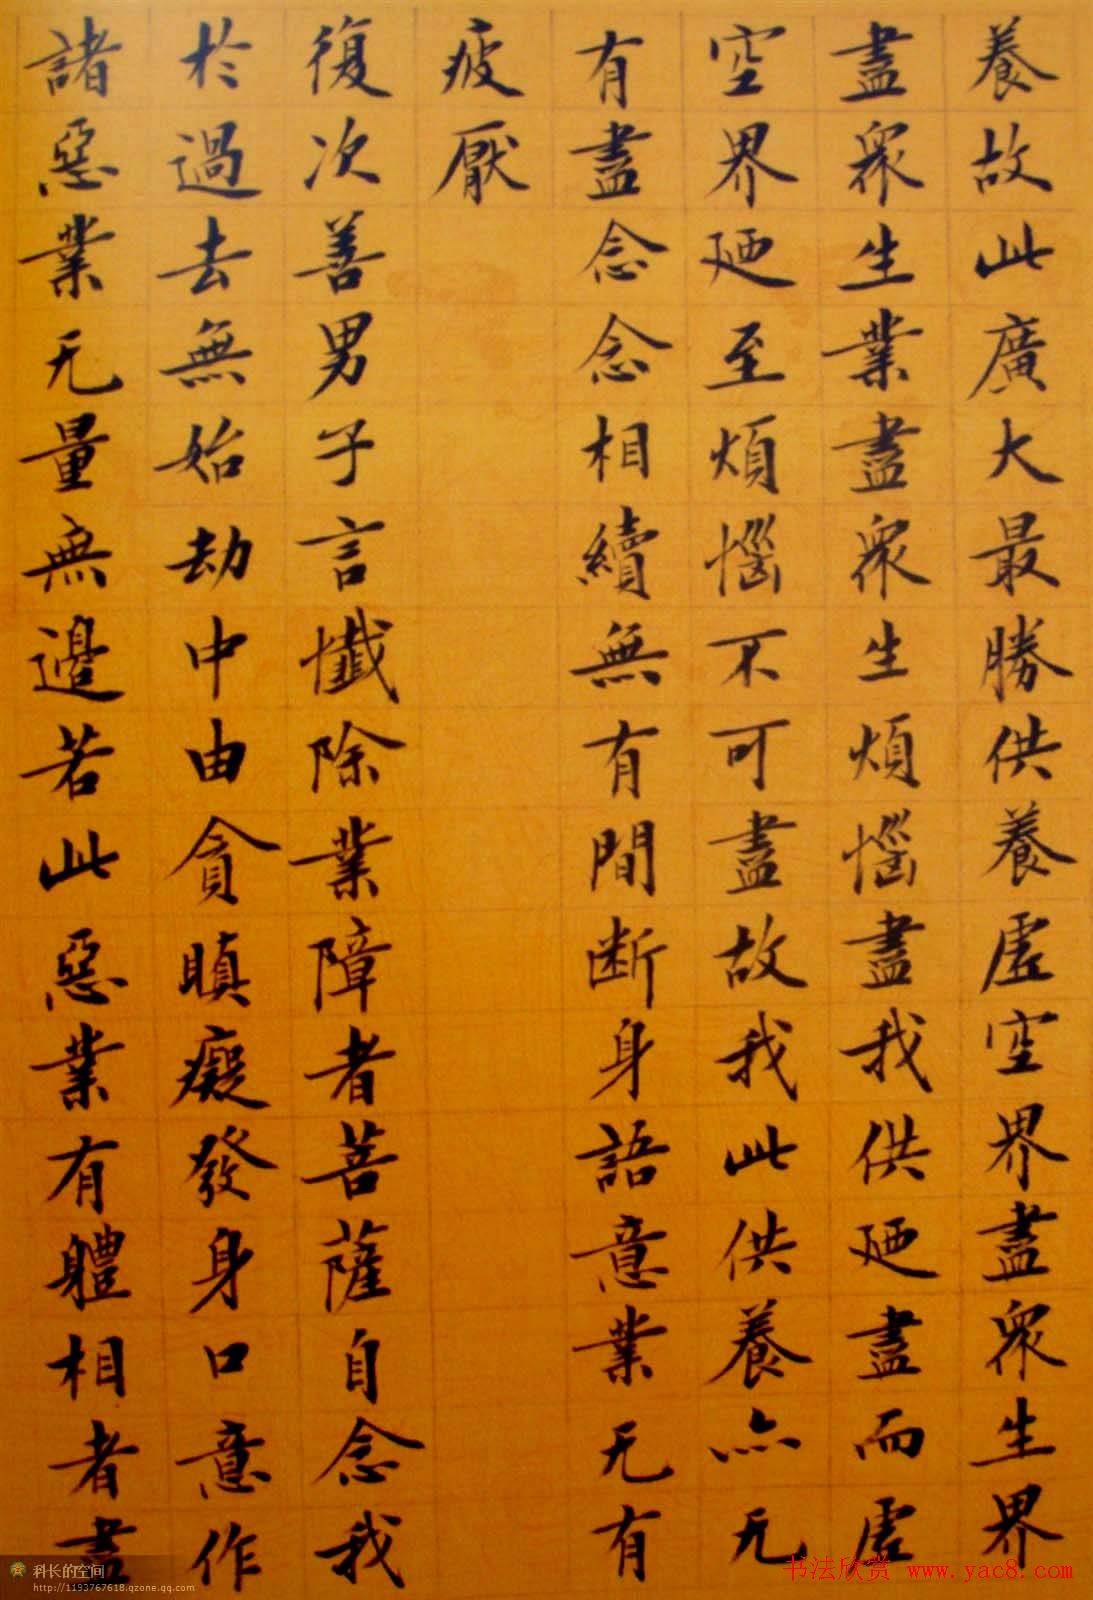 養故此廣大最勝供養虛空界盡眾生界
盡眾生業盡眾生煩惱盡我供廼盡而虛
空界廼至煩惱不可盡故我此供養亦无
有盡念念相續無有間断身語意業无有
疲厭
復次善男子言懺除業障者菩薩自念我
於過去無始劫中由貪瞋癡發身口意作
諸惡業无量無邊若此惡業有體相者盡
科长的空间
http://1193767618.qzone.qq.com
书法欣赏 www.yac8.com